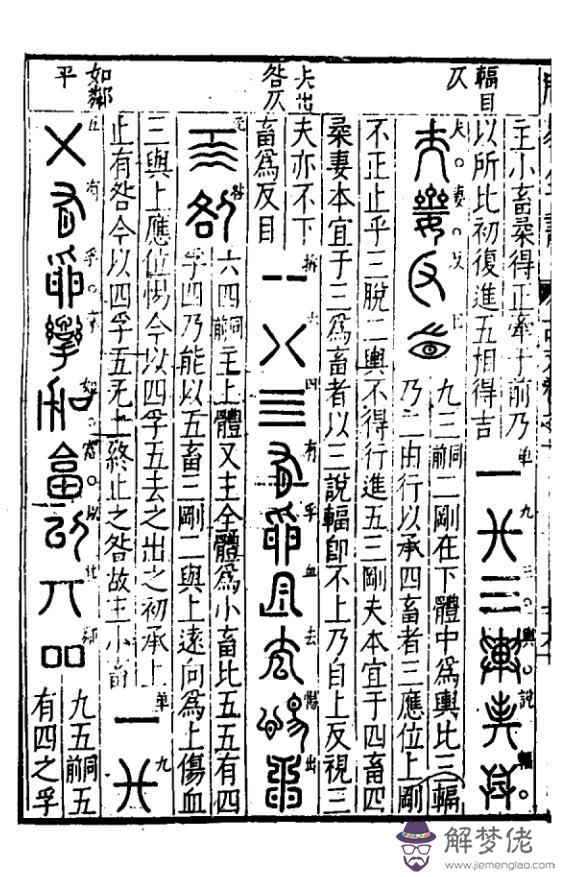 輻目
仄
夬出
咎仄
如鄰
平
主小畜柔得正牽于前乃
以所比初復進五相得吉
單 九 三 輿 說 輻
夫 妻 反 目
九三前同二剛在下體中為輿比三輻
乃二由行以承四畜者三應位上剛
不正止乎三脫二輿不得行進五三剛夫本宜于四畜四
柔妻本宜于三為畜者以三說輻即不上乃自上反視三
夫亦不下
畜為反目
拆 六 四 有 孚 血 去 惕 出
无 咎
六四前同主上體又主全體為小畜比五五有四
孚四乃能以五畜三剛二與上遠向為上傷血
三與上應位惕今以四孚五去之出之初承上
止有咎今以四孚五无終止之咎故主小畜
單 九
五 有 孚 攣 如 富 以 其 鄰
九五前同五
有四之孚
解梦佬
www.jiemenglao.com